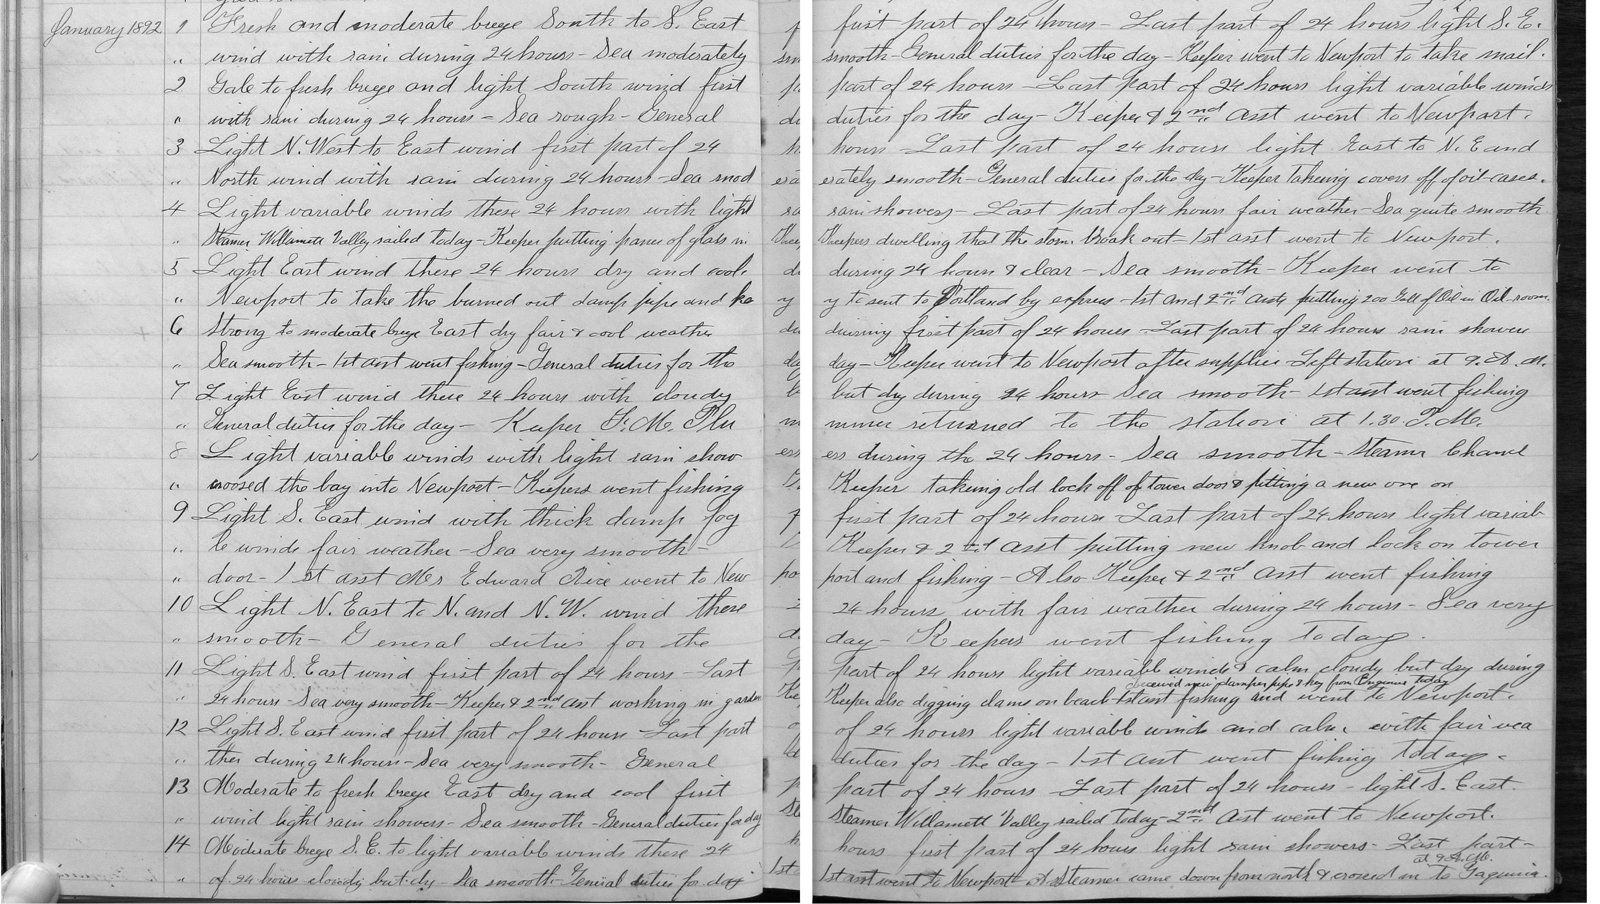 January 1892 1 Fresh and moderate breeze South to S. East first part of 24 hours - Last part of 24 hours light S. E.
" wind with rain during 24 hours - Sea moderately smooth - General duties for the day - Keeper went to Newport to take mail.
2 Gale to fresh breeze and light South wind first part of 24 hours - Last part of 24 hours light variable winds
" with rain during 24 hours - Sea rough - General duties for the day - Keeper & 2nd asst went to Newport.
3 Light N. West to East wind first part of 24 hours - Last part of 24 hours light East to N. E and
" North wind with rain during 24 hours - Sea mod erately smooth - General duties for the day - Keeper takeing covers off of oil-cases.
4 Light variable winds these 24 hours with light rain showers - Last part of 24 hours fair weather - Sea quite smooth
" Steamer Willamett Valley sailed today - Keeper putting panes of glass in Keepers dwelling that the storm broak out - 1st asst went to Newport.
5 Light East wind these 24 hours dry and cool during 24 hours & clear - Sea smooth - Keeper went to
" Newport to take the burned out damp pipe and ke y to sent to Portland by express - 1st and 2nd assts putting 200 Gall of Oil in Oil-room.
6 Strong to moderate breeze East dry fair & cool weather during first part of 24 hours - Last part of 24 hours rain shower
" Sea smooth - 1st asst went fishing - General duties for the day - Keeper went to Newport after supplies - Left station at 9. A. M.
7 Light East wind these 24 hours with cloudy but dry during 24 hours Sea smooth - 1st asst went fishing
" General duties for the day - Keeper F. M. Plu mmer returned to the station at 1.30 P. M.
8 Light variable winds with light rain show ers during the 24 hours - Sea smooth - Steamer Chanel
" croosed the bay into Newport - Keepers went fishing Keeper takeing old lock off of tower door & putting a new one on
9 Light S. East wind with thick damp fog first part of 24 hours - Last part of 24 hours light variab
" le winds fair weather - Sea very smooth - Keeper & 2nd asst putting new knob and lock on tower
" door - 1st asst Mrs Edward Rice went to New port and fishing - Also Keeper & 2nd asst went fishing
10 Light N. East to N. and N. W. wind these 24 hours with fair weather during 24 hours - Sea very
" smooth - General duties for the day - Keepers went fishing today.
11 Light S. East wind first part of 24 hours - Last part of 24 hours light variable winds & calm cloudy but dry during
received new damper pipe & key from Engeneer today
" 24 hours - Sea very smooth - Keeper & 2nd asst working in garden Keeper also digging clams on beach - 1st asst fishing and went to Newport.
12 Light S. East wind first part of 24 hours - Last part of 24 hours light variable winds and calm. with fair wea
" ther during 24 hours - Sea very smooth - General duties for the day - 1st asst went fishing today.
13 Moderate to fresh breeze East dry and cool first part of 24 hours - Last part of 24 hours - light S. East.
" wind light rain showers - Sea smooth - General duties for day Steamer Willamett Valley sailed today - 2nd asst went to Newport.
14 Moderate breeze S. E. to light variable winds these 24 hours first part of 24 hours light rain showers - Last part -
at 9 A. M.
" of 24 hours cloudy but dry - Sea smooth - General duties for day 1st asst went to Newport - A Steamer came down from north & crossed in to Yaquina.